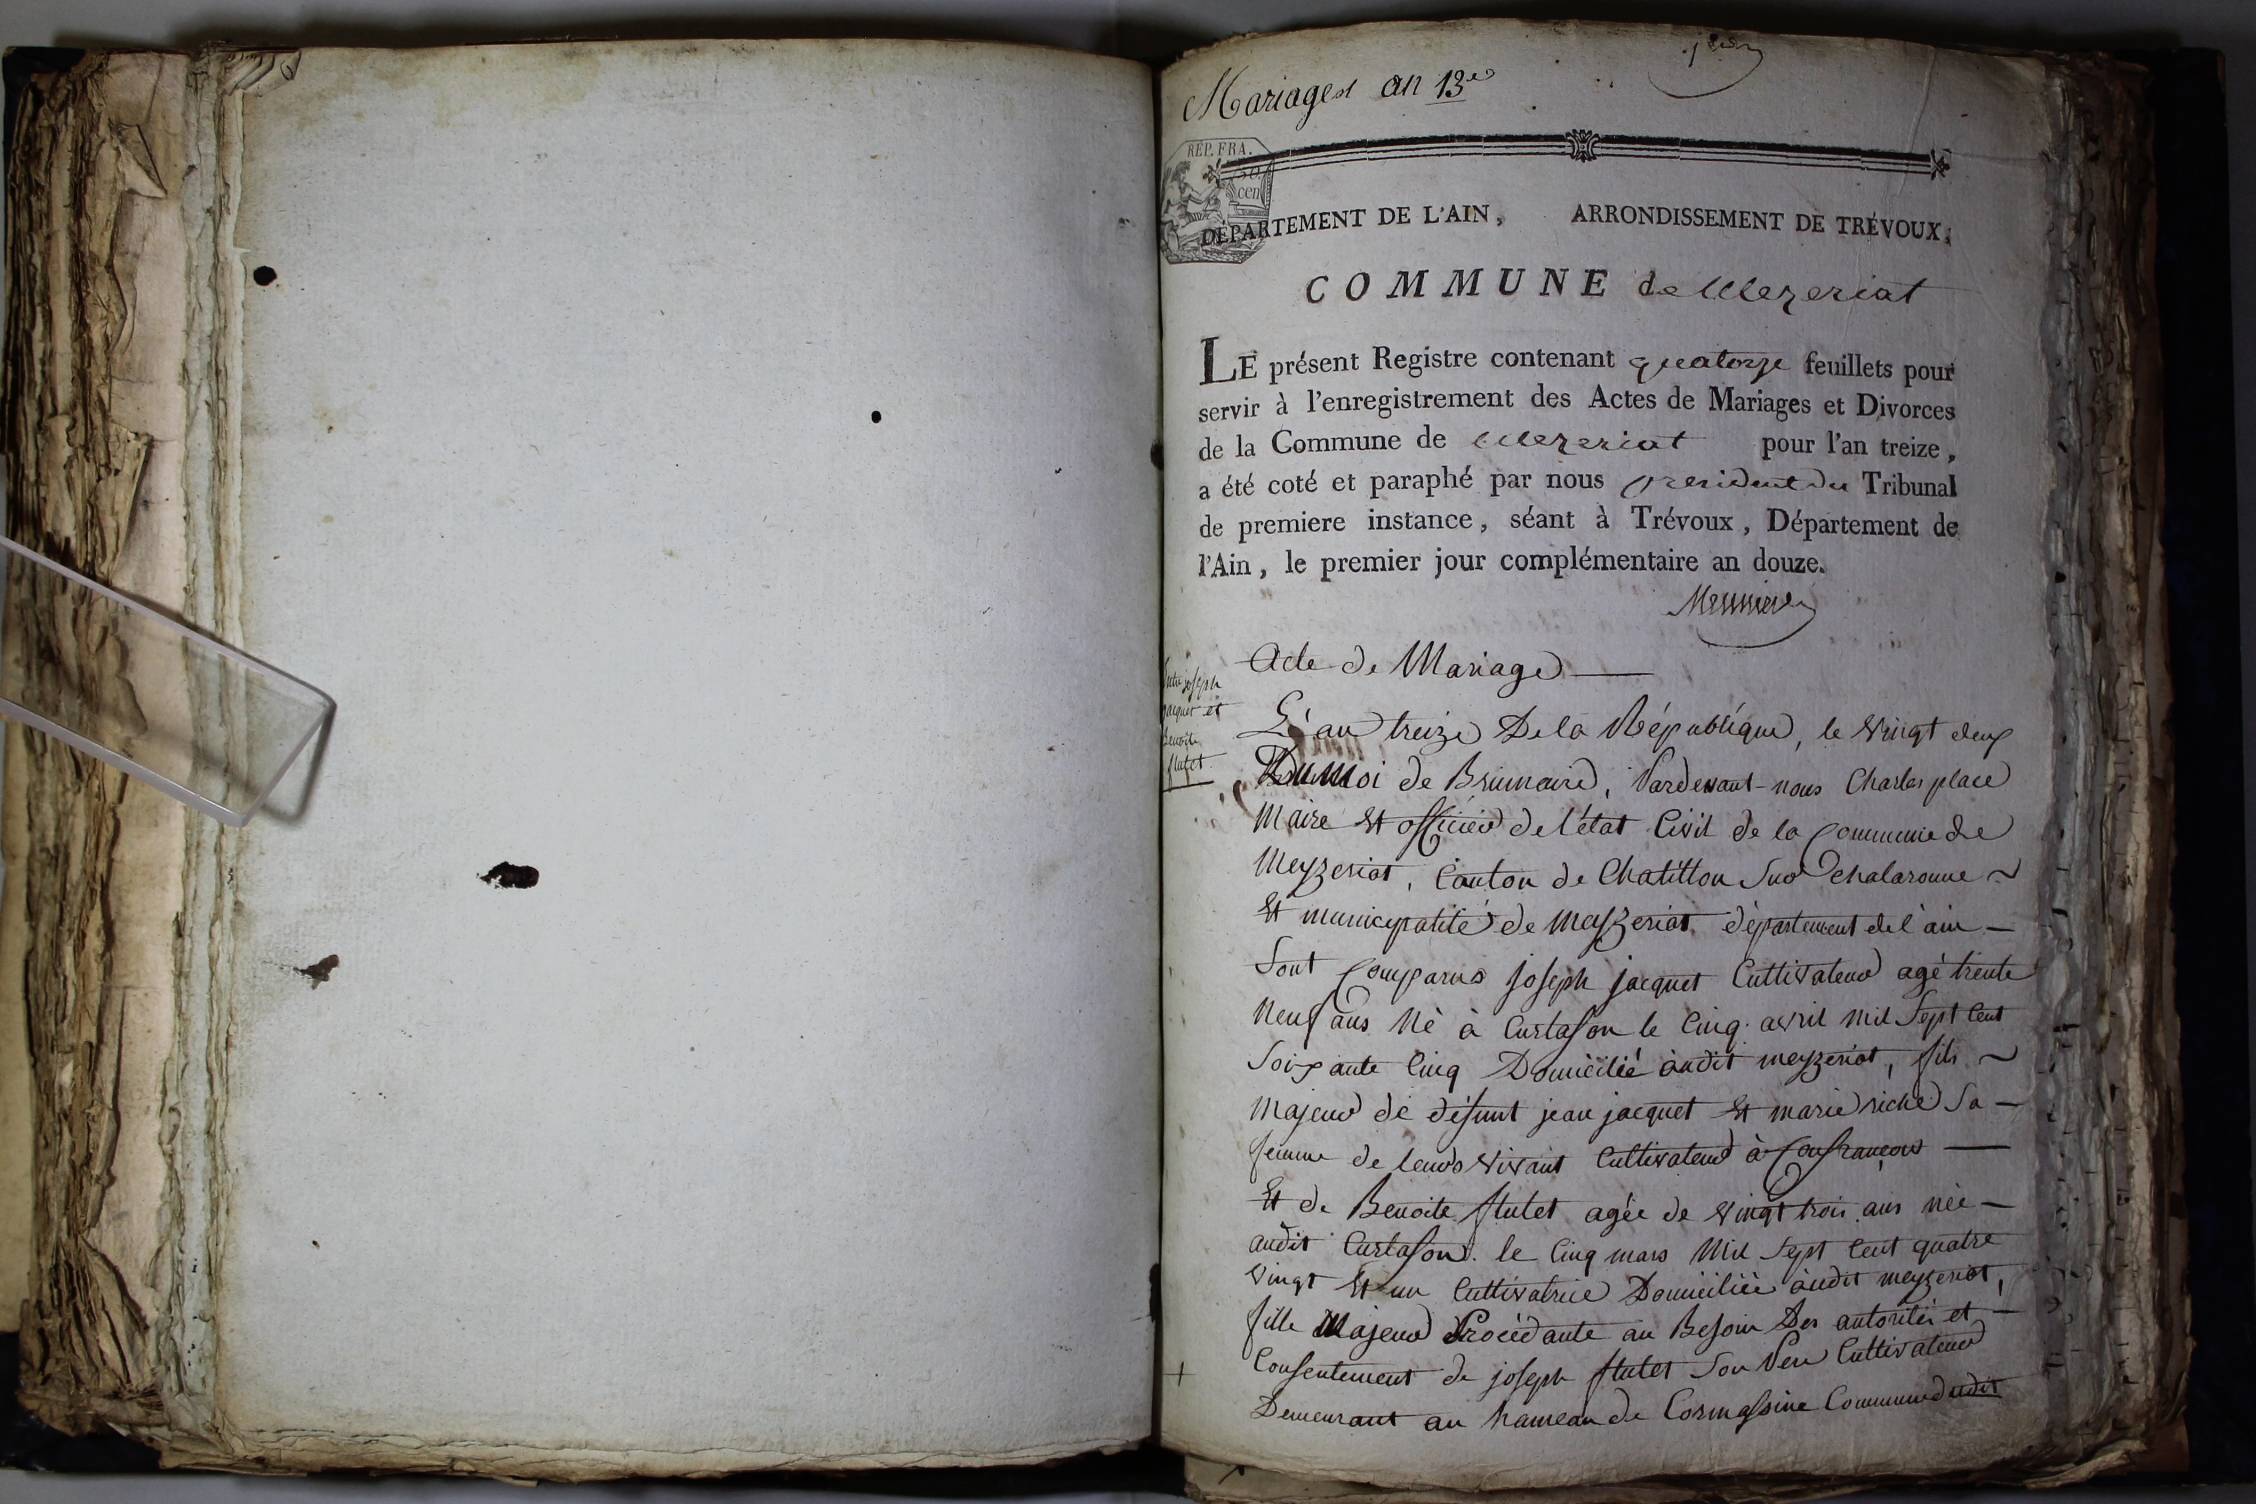 Mariages an 13e
REP. FRA.
50.
cen
DÉPARTEMENT DE L'AIN, ARRONDISSEMENT DE TRÉVOUX,
COMMUNE de Mezeriat
LE présent Registre contenant quatorze feuillets pour
servir à l'enregistrement des Actes de Mariages et Divorces
de la Commune de Mezeriat pour l'an treize,
a été coté et paraphé par nous president du Tribunal
de premiere instance, séant à Trévoux, Département de
l'Ain, le premier jour complémentaire an douze.
Acte de Mariage
Entre joseph
jacquet et
Benoite
flutet
L'an treize De la République, le vingt deux
Du Moi de Brumaire, Pardevant-nous Charles place
Maire et officier de l'état Civil de la Commune de
Meyzeriat, Canton de Chatillon Sur chalaronne
Et municipalité de Meyzeriat département de l'ain
Sont Comparus joseph jacquet Cultivateur agé trente
Neuf ans Né à Curtafon le Cinq avril Mil Sept Cent
Soixante Cinq Domicilié audit meyzeriat, fils
Majeur de défunt jean jacquet Et marie riche Sa
femme de leurs vivant Cultivateur à Confrançois
Et de Benoite flutet agée de vingt trois ans née
audit Curtafon le Cinq mars Mil Sept Cent quatre
vingt Et un Cultivatrice Domiciliée audit meyzeriat,
fille Majeur Procédante au Besoin Des autorités et
Consentement de joseph flutet Son Pere Cultivateur
Demeurant au hameau de Cormassine Commune dudit